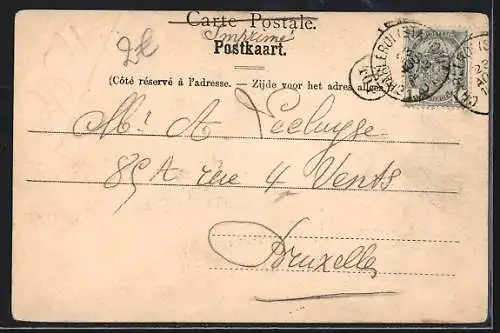 Carte Postale.
Imprimé
Postkaart.
(Côté réservé à l'adresse. — Zijde voor het adres alleen
Mr A
85 A rue 4 Vents
Bruxelles
CHARLEROI
1